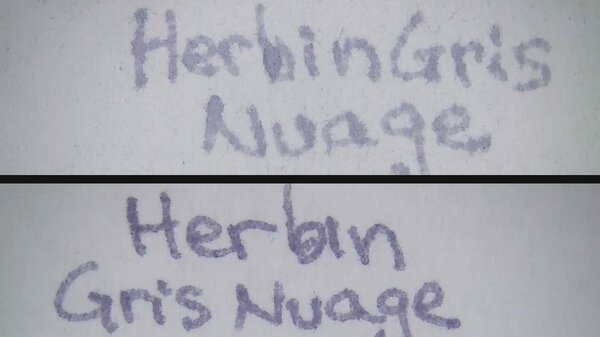 Herbin Gris
Nuage
Herbin
Gris Nuage